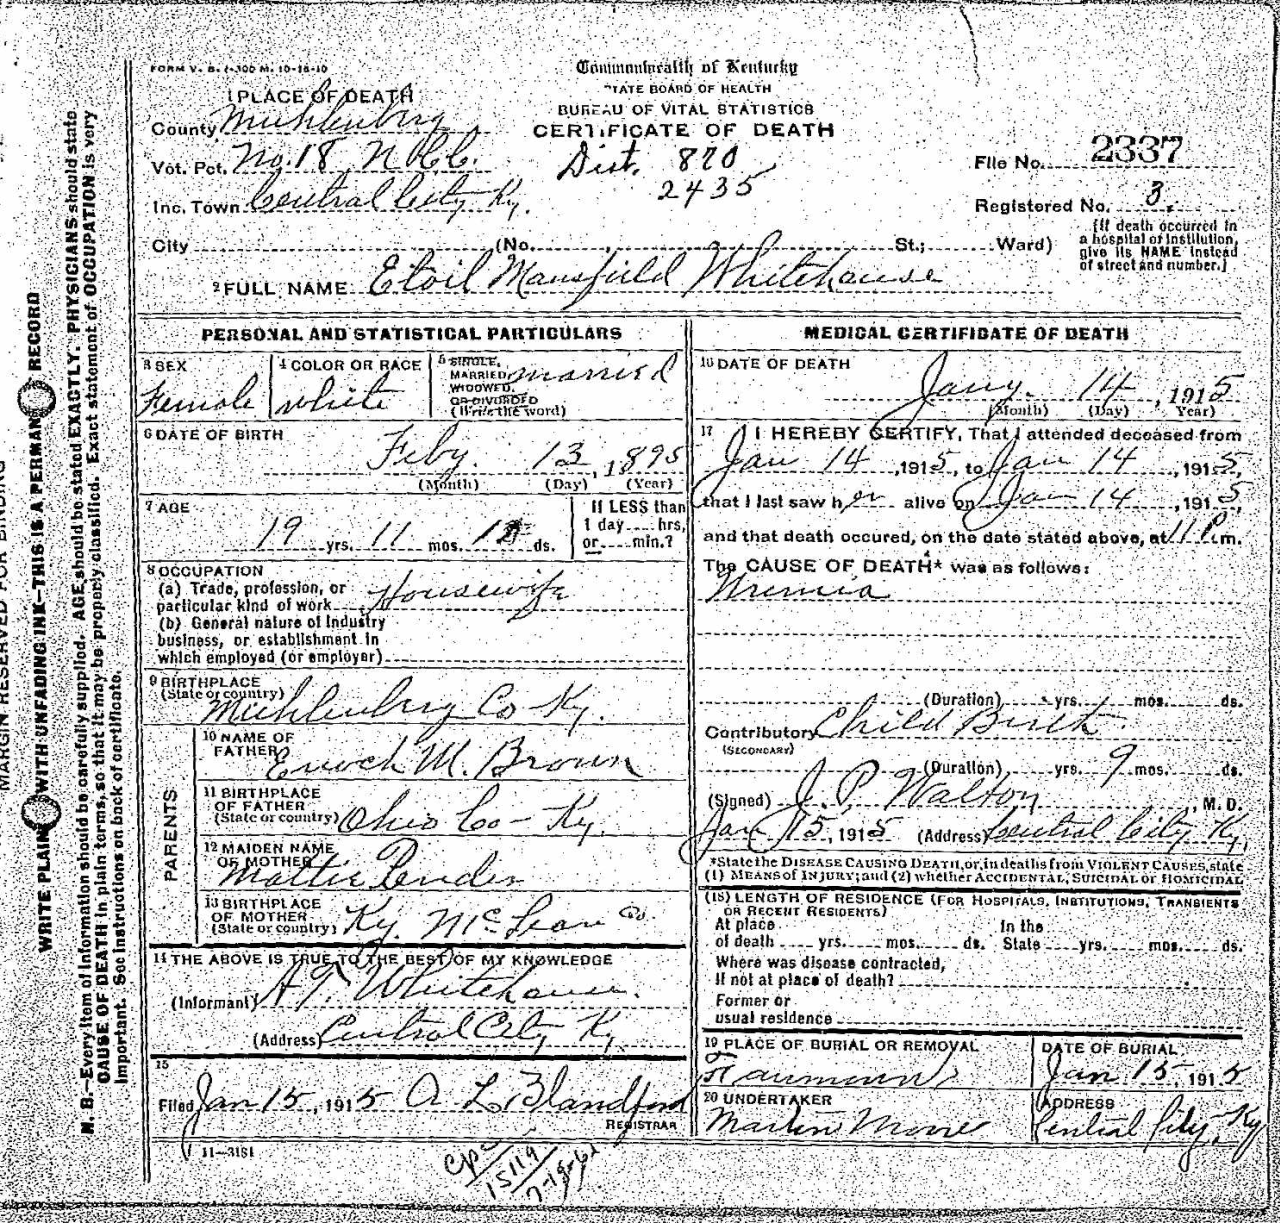 FORM V. S. 1-300 M. 10-18-10
Commonwealth of Kentucky
STATE BOARD OF HEALTH
BUREAU OF VITAL STATISTICS
CERTIFICATE OF DEATH
1 PLACE OF DEATH
County Muhlenberg
Vot. Pct. No. 18 N C.C.
Inc. Town Central City Ky.
Dist. 870
2435
File No. 2337
Registered No. 3.
City (No. St.; Ward)
[If death occurred in
a hospital or institution,
give its NAME instead
of street and number.]
2 FULL NAME Etoil Mansfield Whitehouse
PERSONAL AND STATISTICAL PARTICULARS
3 SEX
Female
4 COLOR OR RACE
white
5 SINGLE,
MARRIED,
WIDOWED,
OR DIVORCED
(Write the word)
married
6 DATE OF BIRTH
Feby. 13, 1895
(Month) (Day) (Year)
7 AGE
19 yrs. 11 mos. ds.
If LESS than
1 day.....hrs,
or.....min.?
8 OCCUPATION
(a) Trade, profession, or
particular kind of work Housewife
(b) General nature of Industry
business, or establishment in
which employed (or employer)
9 BIRTHPLACE
(State or country)
Muhlenberg Co Ky.
PARENTS
10 NAME OF
FATHER
Enoch M. Brown
11 BIRTHPLACE
OF FATHER
(State or country) Ohio Co- Ky.
12 MAIDEN NAME
OF MOTHER
Mattie Pender
13 BIRTHPLACE
OF MOTHER
(State or country) Ky. McLean Co
14 THE ABOVE IS TRUE TO THE BEST OF MY KNOWLEDGE
(Informant) A.T. Whitehouse.
(Address) Central City Ky
15
Filed Jan 15, 1915 A L Blandford
REGISTRAR
11-3181
15119
MEDICAL CERTIFICATE OF DEATH
16 DATE OF DEATH
Jany. 14, 1915
(Month) (Day) Year)
17 I HEREBY CERTIFY, That I attended deceased from
Jan 14, 1915, to Jan 14, 1915,
that I last saw her alive on Jan 14, 1915,
and that death occured, on the date stated above, at 11 P.m.
The CAUSE OF DEATH* was as follows:
Uremia
(Duration) yrs. mos. ds.
Contributory Child Birth
(SECONDARY)
(Duration) yrs. 9 mos. ds.
(Signed) J. P. Walton, M. D.
Jan 15, 1915 (Address) Central City Ky,
*State the DISEASE CAUSING DEATH, or, in deaths from VIOLENT CAUSES, state
(1) MEANS of INJURY; and (2) whether ACCIDENTAL, SUICIDAL or HOMICIDAL
(18) LENGTH OF RESIDENCE (FOR HOSPITALS, INSTITUTIONS, TRANSIENTS
OR RECENT RESIDENTS)
At place In the
of death yrs. mos. ds. State yrs. mos. ds.
Where was disease contracted,
If not at place of death?
Former or
usual residence
19 PLACE OF BURIAL OR REMOVAL
DATE OF BURIAL
Jan. 15, 1915
20 UNDERTAKER
Martin Moore
ADDRESS
Central City, Ky
MARGIN RESERVED FOR BINDING
WRITE PLAINLY WITH UNFADING INK—THIS IS A PERMANENT RECORD
N. B.—Every item of information should be carefully supplied. AGE should be stated EXACTLY. PHYSICIANS should state
CAUSE OF DEATH in plain terms, so that it may be properly classified. Exact statement of OCCUPATION is very
important. See instructions on back of certificate.